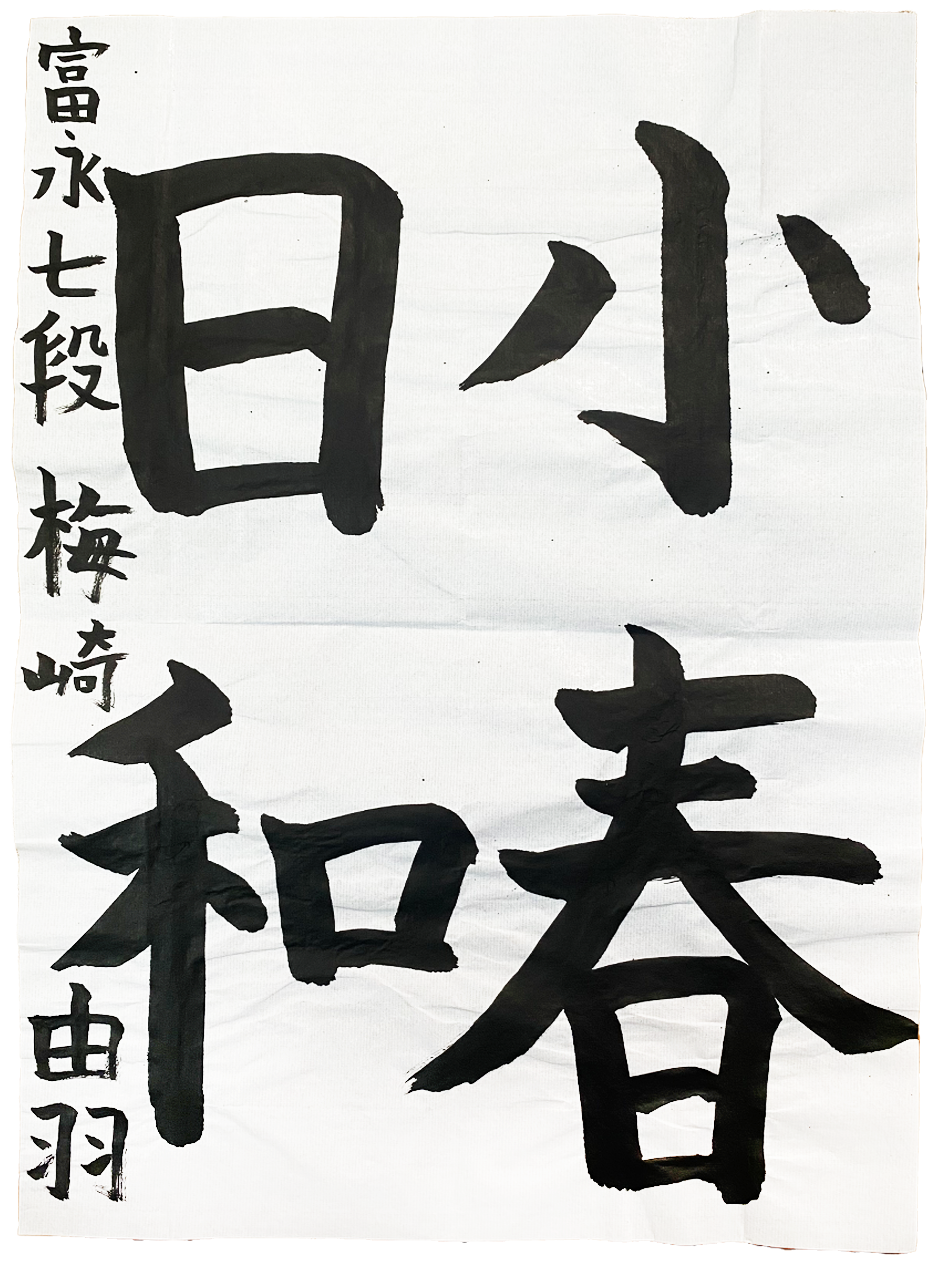 小春
日和
富永七段 梅崎由羽